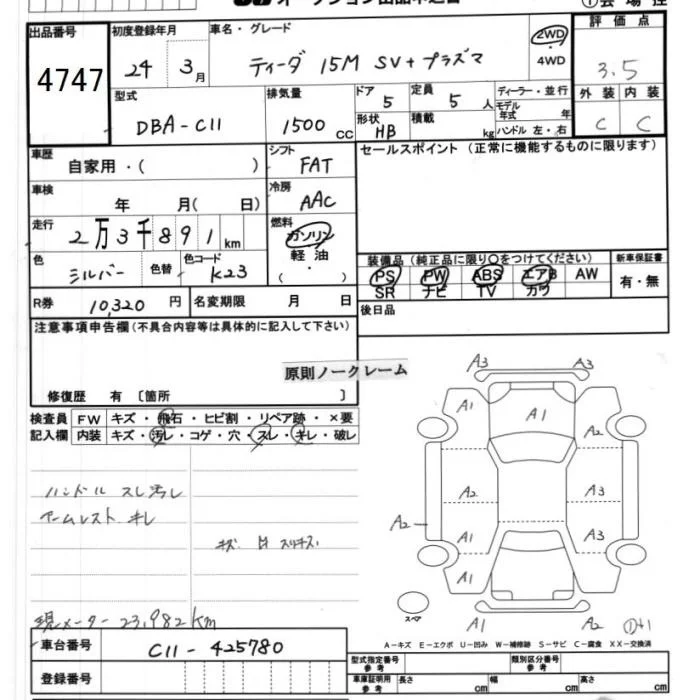 出品番号 4747
初度登録年月 24 3月
車名・グレード ティーダ 15M SV+プラズマ
2WD・4WD
評価点 3.5
外装 C 内装 C
型式 DBA-C11
排気量 1500 CC
ドア 5 定員 5人
形状 HB 積載 kg
ディーラー・並行
モデル年式 年
ハンドル 左・右
車歴 自家用・( )
シフト FAT
セールスポイント(正常に機能するものに限ります)
車検 年 月( 日)
冷房 AAC
走行 2万3千891km
燃料 ガソリン 軽油 ( ・ )
色 シルバー 色替 色コード K23
装備品(純正品に限り○をつけてください)
PS PW ABS エアB AW
SR ナビ TV カワ
新車保証書 有・無
R券 10,320円 名変期限 月 日
後日品
注意事項申告欄(不具合内容等は具体的に記入して下さい)
原則ノークレーム
修復歴 有 〔箇所 〕
検査員 FW キズ・飛石・ヒビ割・リペア跡・×要
記入欄 内装 キズ・汚レ・コゲ・穴・スレ・キレ・破レ
ハンドル スレ汚レ
アームレスト キレ
現メーター 23,982km
A3 A3
A1 A1 A2
A2 A3
A2 A1 A3
A1
スペア
A1 A2
A-キズ E-エクボ U-凹み W-補修跡 S-サビ C-腐食 XX-交換済
車台番号 C11-425780
登録番号
型式指定番号 参考 類別区分番号 参考
車庫証明用 参考 長さ cm 幅 cm 高さ cm